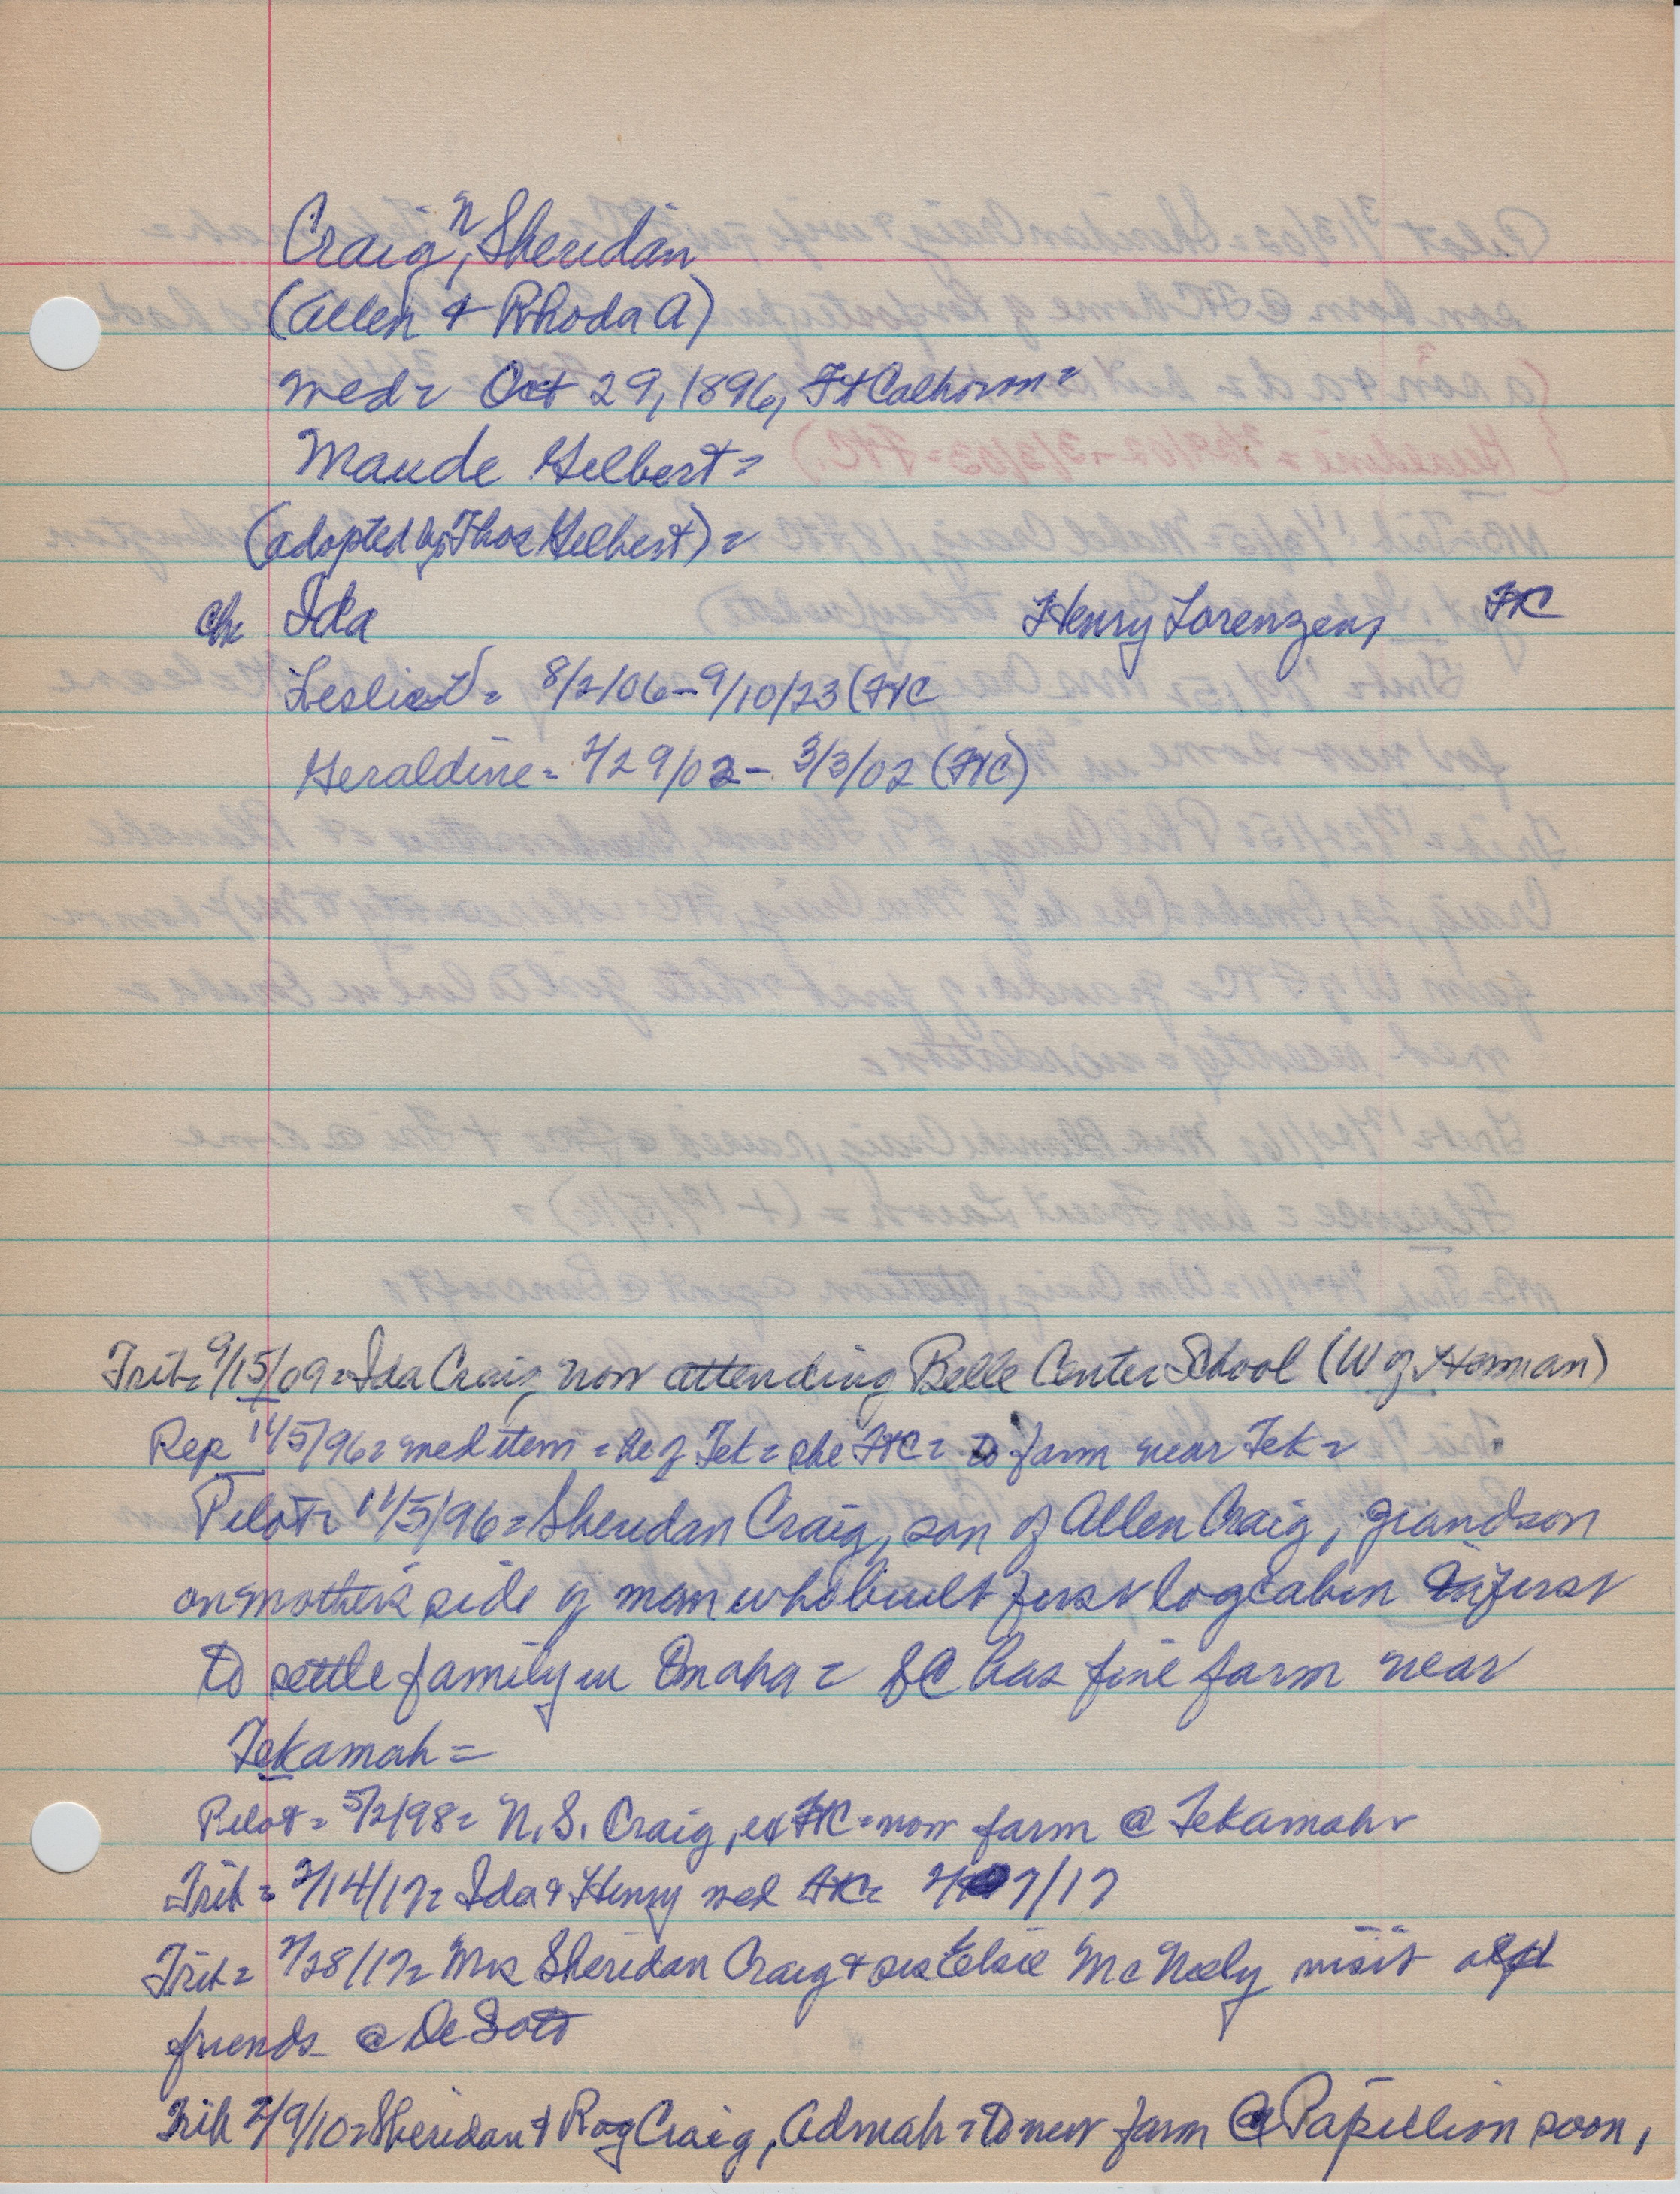 Craig, N Sheridan
(Allen & Rhoda A)
wed= Oct 29, 1896, Ft Calhoun=
Maude Gilbert=
(adopted by Thos Gilbert)=
Ch Ida Henry Lorenzen, FtC
Leslie = 8/2/06-9/10/23 (FtC
Geraldine= /29/02- 3/3/02 (FtC)
Trib= 9/15/09= Ida Craig now attending Belle Center School (W of Herman)
Rep 11/5/96= wed item = he of Tek= she FtC= to farm near Tek=
Pilot= 11/5/96= Sheridan Craig, son of Allen Craig, grandson
on mother's side of man who built first log cabin & first
to settle family in Omaha= SC has fine farm near
Tekamah=
Pilot= 5/2/98= N.S. Craig, ex FtC= now farm @ Tekamah=
Trib= 2/14/17= Ida & Henry wed FtC= 2/7/17
Trib= /28/17= Mrs Sheridan Craig & sis Elsie McNeely visit old
friends @ DeSoto
Trib 2/9/10= Sheridan & Roy Craig, Admah= to new farm @ Papillion soon,